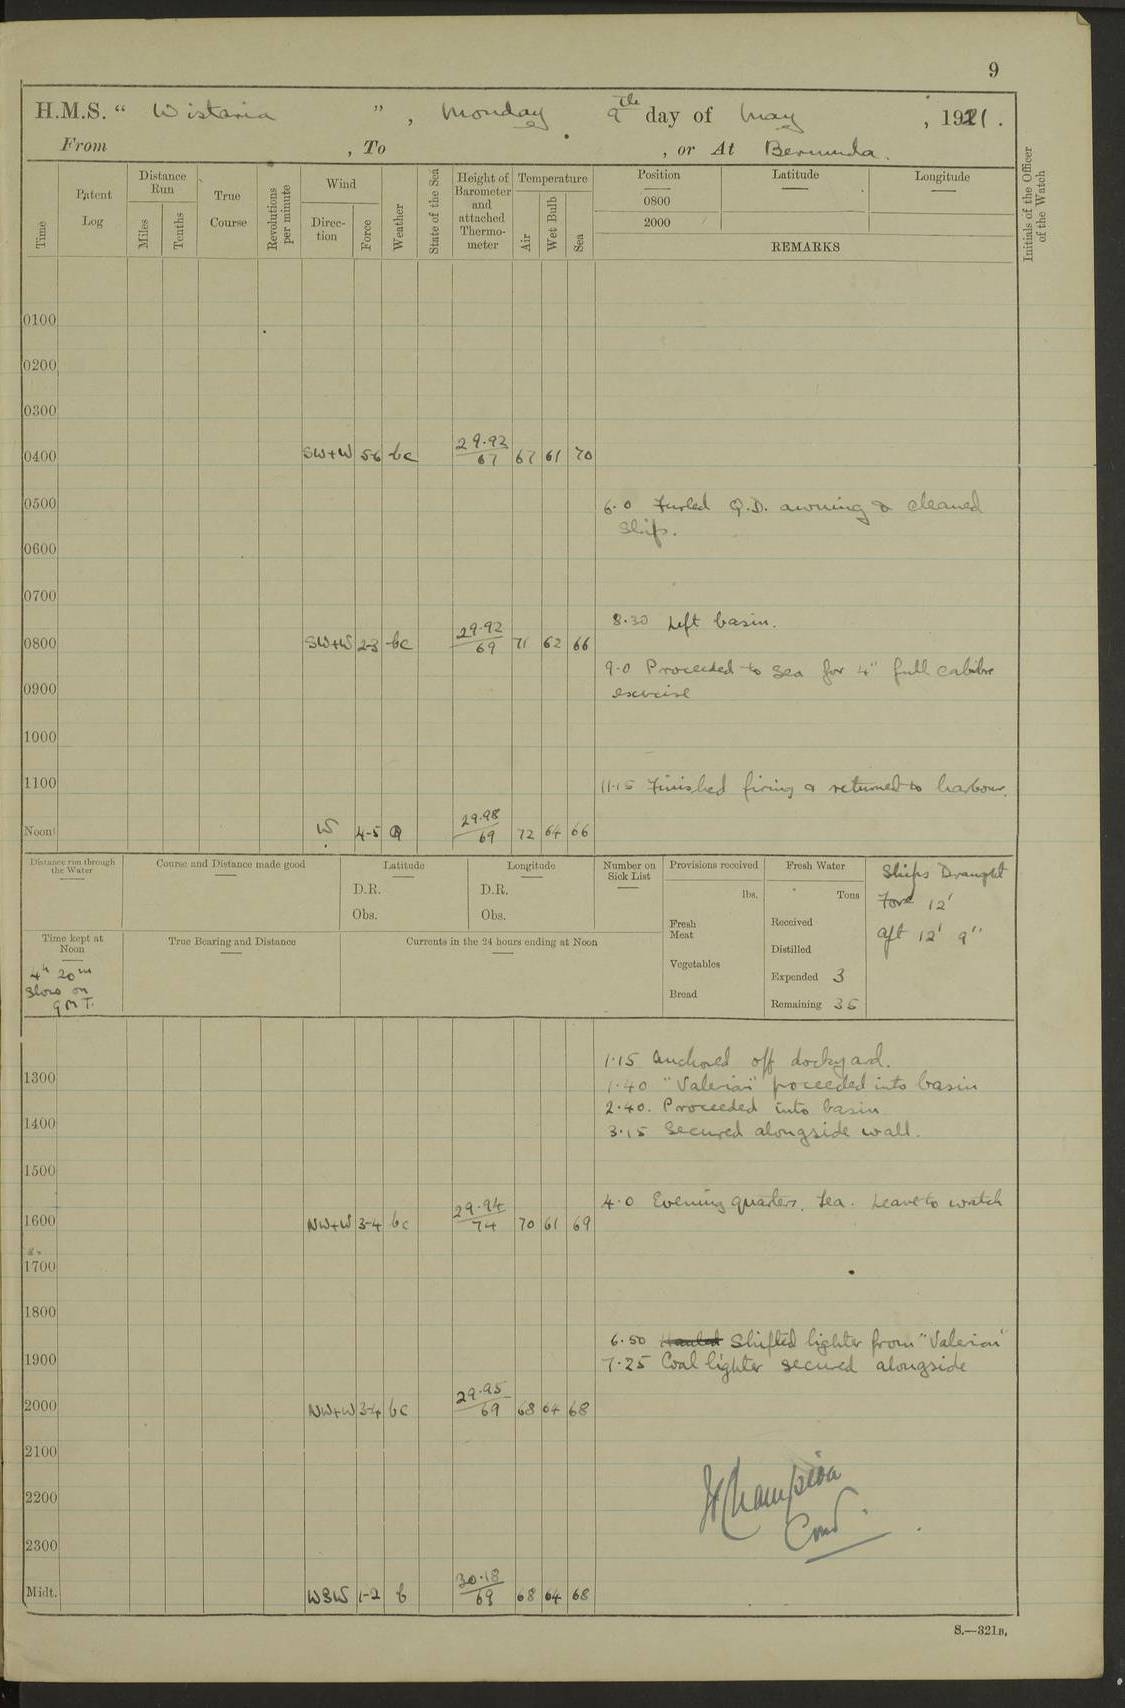 9
H.M.S. “ Wistaria ” , Monday 9th day of May , 1921 .
From , To , or At Bermuda.
Time
Patent Log
Distance Run
Miles
Tenths
True Course
Revolutions per minute
Wind
Direc-tion
Force
Weather
State of the Sea
Height of Barometer and attached Thermo-meter
Temperature
Air
Wet Bulb
Sea
Position
0800
2000
Latitude
Longitude
REMARKS
Initials of the Officer of the Watch
0100
0200
0300
0400 SW+W 5-6 bc 29.92 / 67 67 61 70
0500 6.0 Furled Q.D. awning & cleaned
ship.
0600
0700
8.30 Left basin.
0800 SW+W 2-3 bc 29.92 / 69 71 62 66
9.0 Proceeded to sea for 4" full calibre
0900 exercise
1000
1100 11.15 Finished firing & returned to harbour.
Noon W 4-5 29.98 / 69 72 64 66
Distance run through the Water
Course and Distance made good
Latitude
D.R.
Obs.
Longitude
D.R.
Obs.
Number on Sick List
Provisions received
lbs.
Fresh Meat
Vegetables
Bread
Fresh Water
Tons
Received
Distilled
Expended 3
Remaining 35
Ships Draught
Fore 12'
Aft 12' 9"
Time kept at Noon
4h 20m
Slow on
G.M.T.
True Bearing and Distance
Currents in the 24 hours ending at Noon
1.15 Anchored off dockyard.
1300 1.40 "Valerian" proceeded into basin
2.40. Proceeded into basin
1400 3.15 Secured alongside wall.
1500
4.0 Evening quarters. Tea. Leave to watch
1600 NW+W 3-4 bc 29.94 / 74 70 61 69
1700
1800
6.50 Hauled Shifted lighter from "Valerian"
1900 7.25 Coal lighter secured alongside
2000 NW+W 3-4 bc 29.95 / 69 68 64 68
2100
2200
Champion
Comd.
2300
Midt. WSW 1-2 b 30.18 / 69 68 64 68
S.—321B.